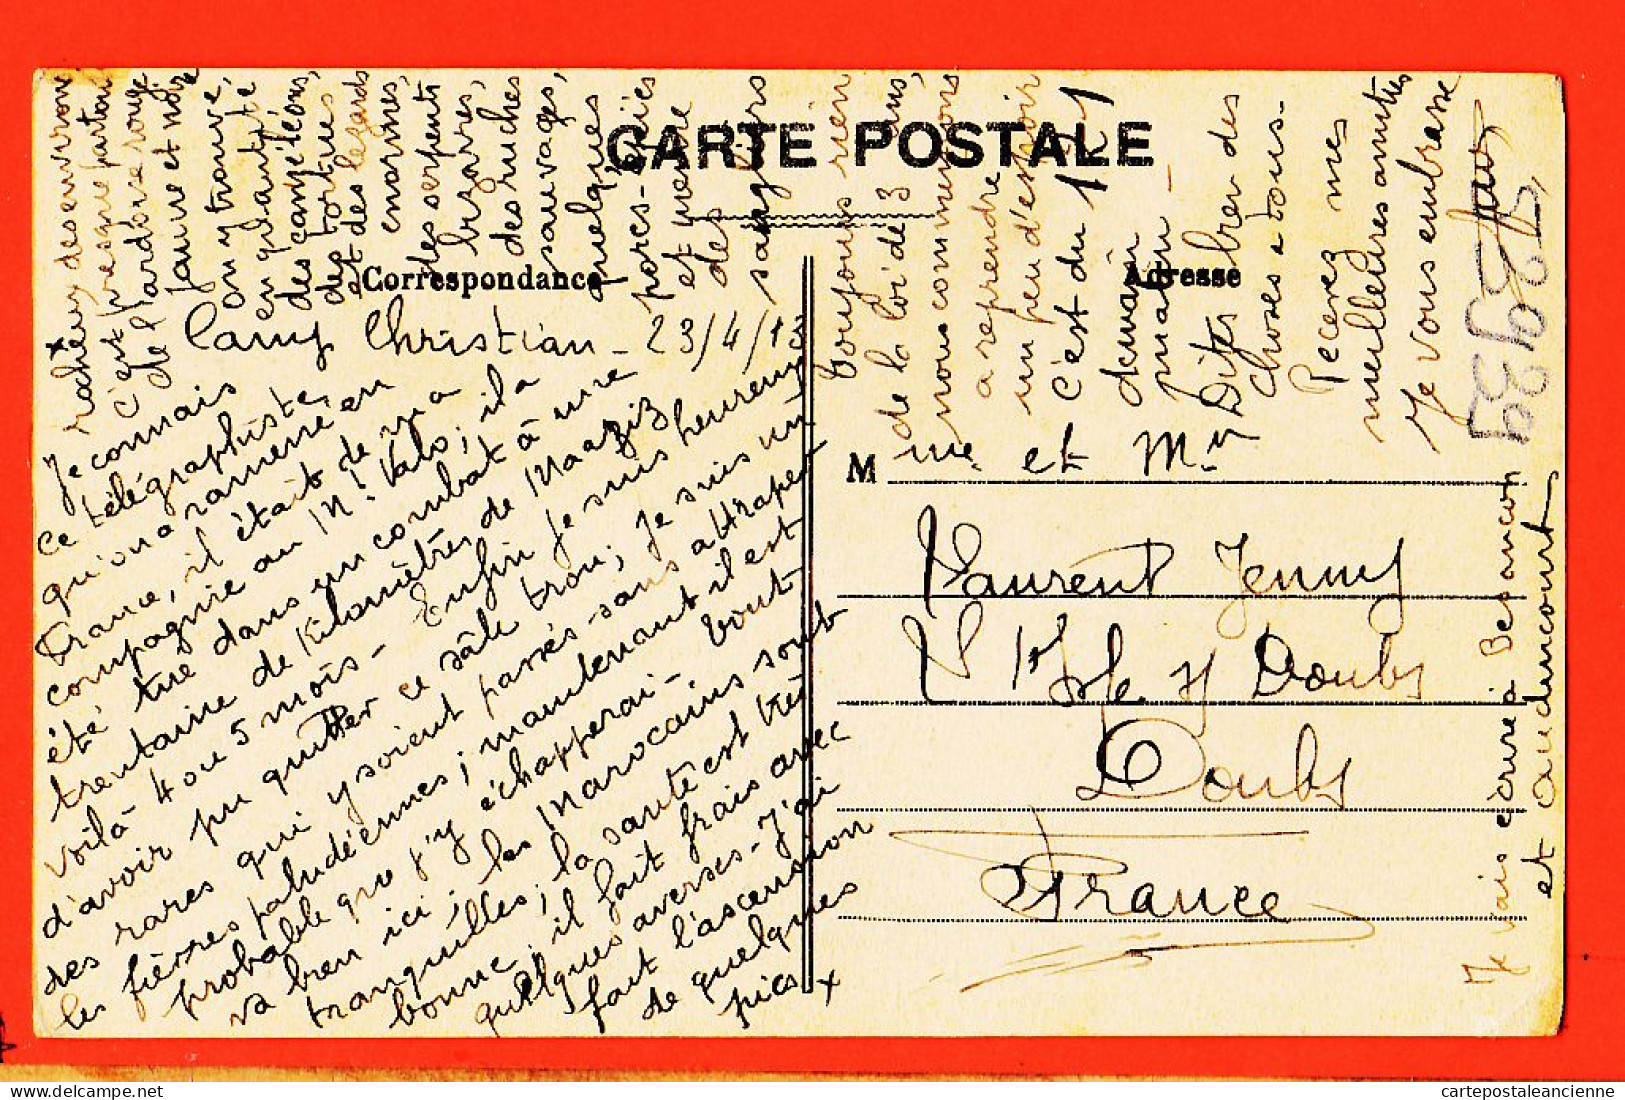 CARTE POSTALE
Correspondance
Adresse
Camp Christian - 23/4/13
Je connais
ce télégraphiste,
qu'on a ramené en
France, il était de ma
compagnie au Mt Valo; il a
été tué dans un combat à une
trentaine de kilomètres de Maaziz
voilà 4 ou 5 mois - Enfin je suis heureux
d'avoir pu quitter ce sâle trou; je suis un
des rares qui y soient passés sans attraper
les fièvres paludéennes; maintenant il est
probable que j'y échapperai - tout
va bien ici; les Marocains sont
tranquilles; la santé est très
bonne; il fait frais avec
quelques averses - J'ai
fait l'ascension
de quelques
pics x
x
rocheux des environs
c'est presque partout
de l'ardoise rouge
jaune et noire
on y trouve,
en quantité
des caméléons,
des tortues
et des lézards
énormes,
des serpents
bizarres,
des ruches
sauvages,
quelques
porcs-épics
et même
des
sangliers
Toujours rien
de la loi de 3 ans,
nous commençons
a reprendre
un peu d'espoir
c'est du 121
demain
matin -
Dites bien des
choses a tous.
Recevez mes
meilleures amitiés
Je vous embrasse
M me et Mr
Laurent Jenny
l'Isle s/ Doubs
Doubs
France
Je vais écrire à Besançon
et Audincourt
delcampe.net
cartepostaleancienne